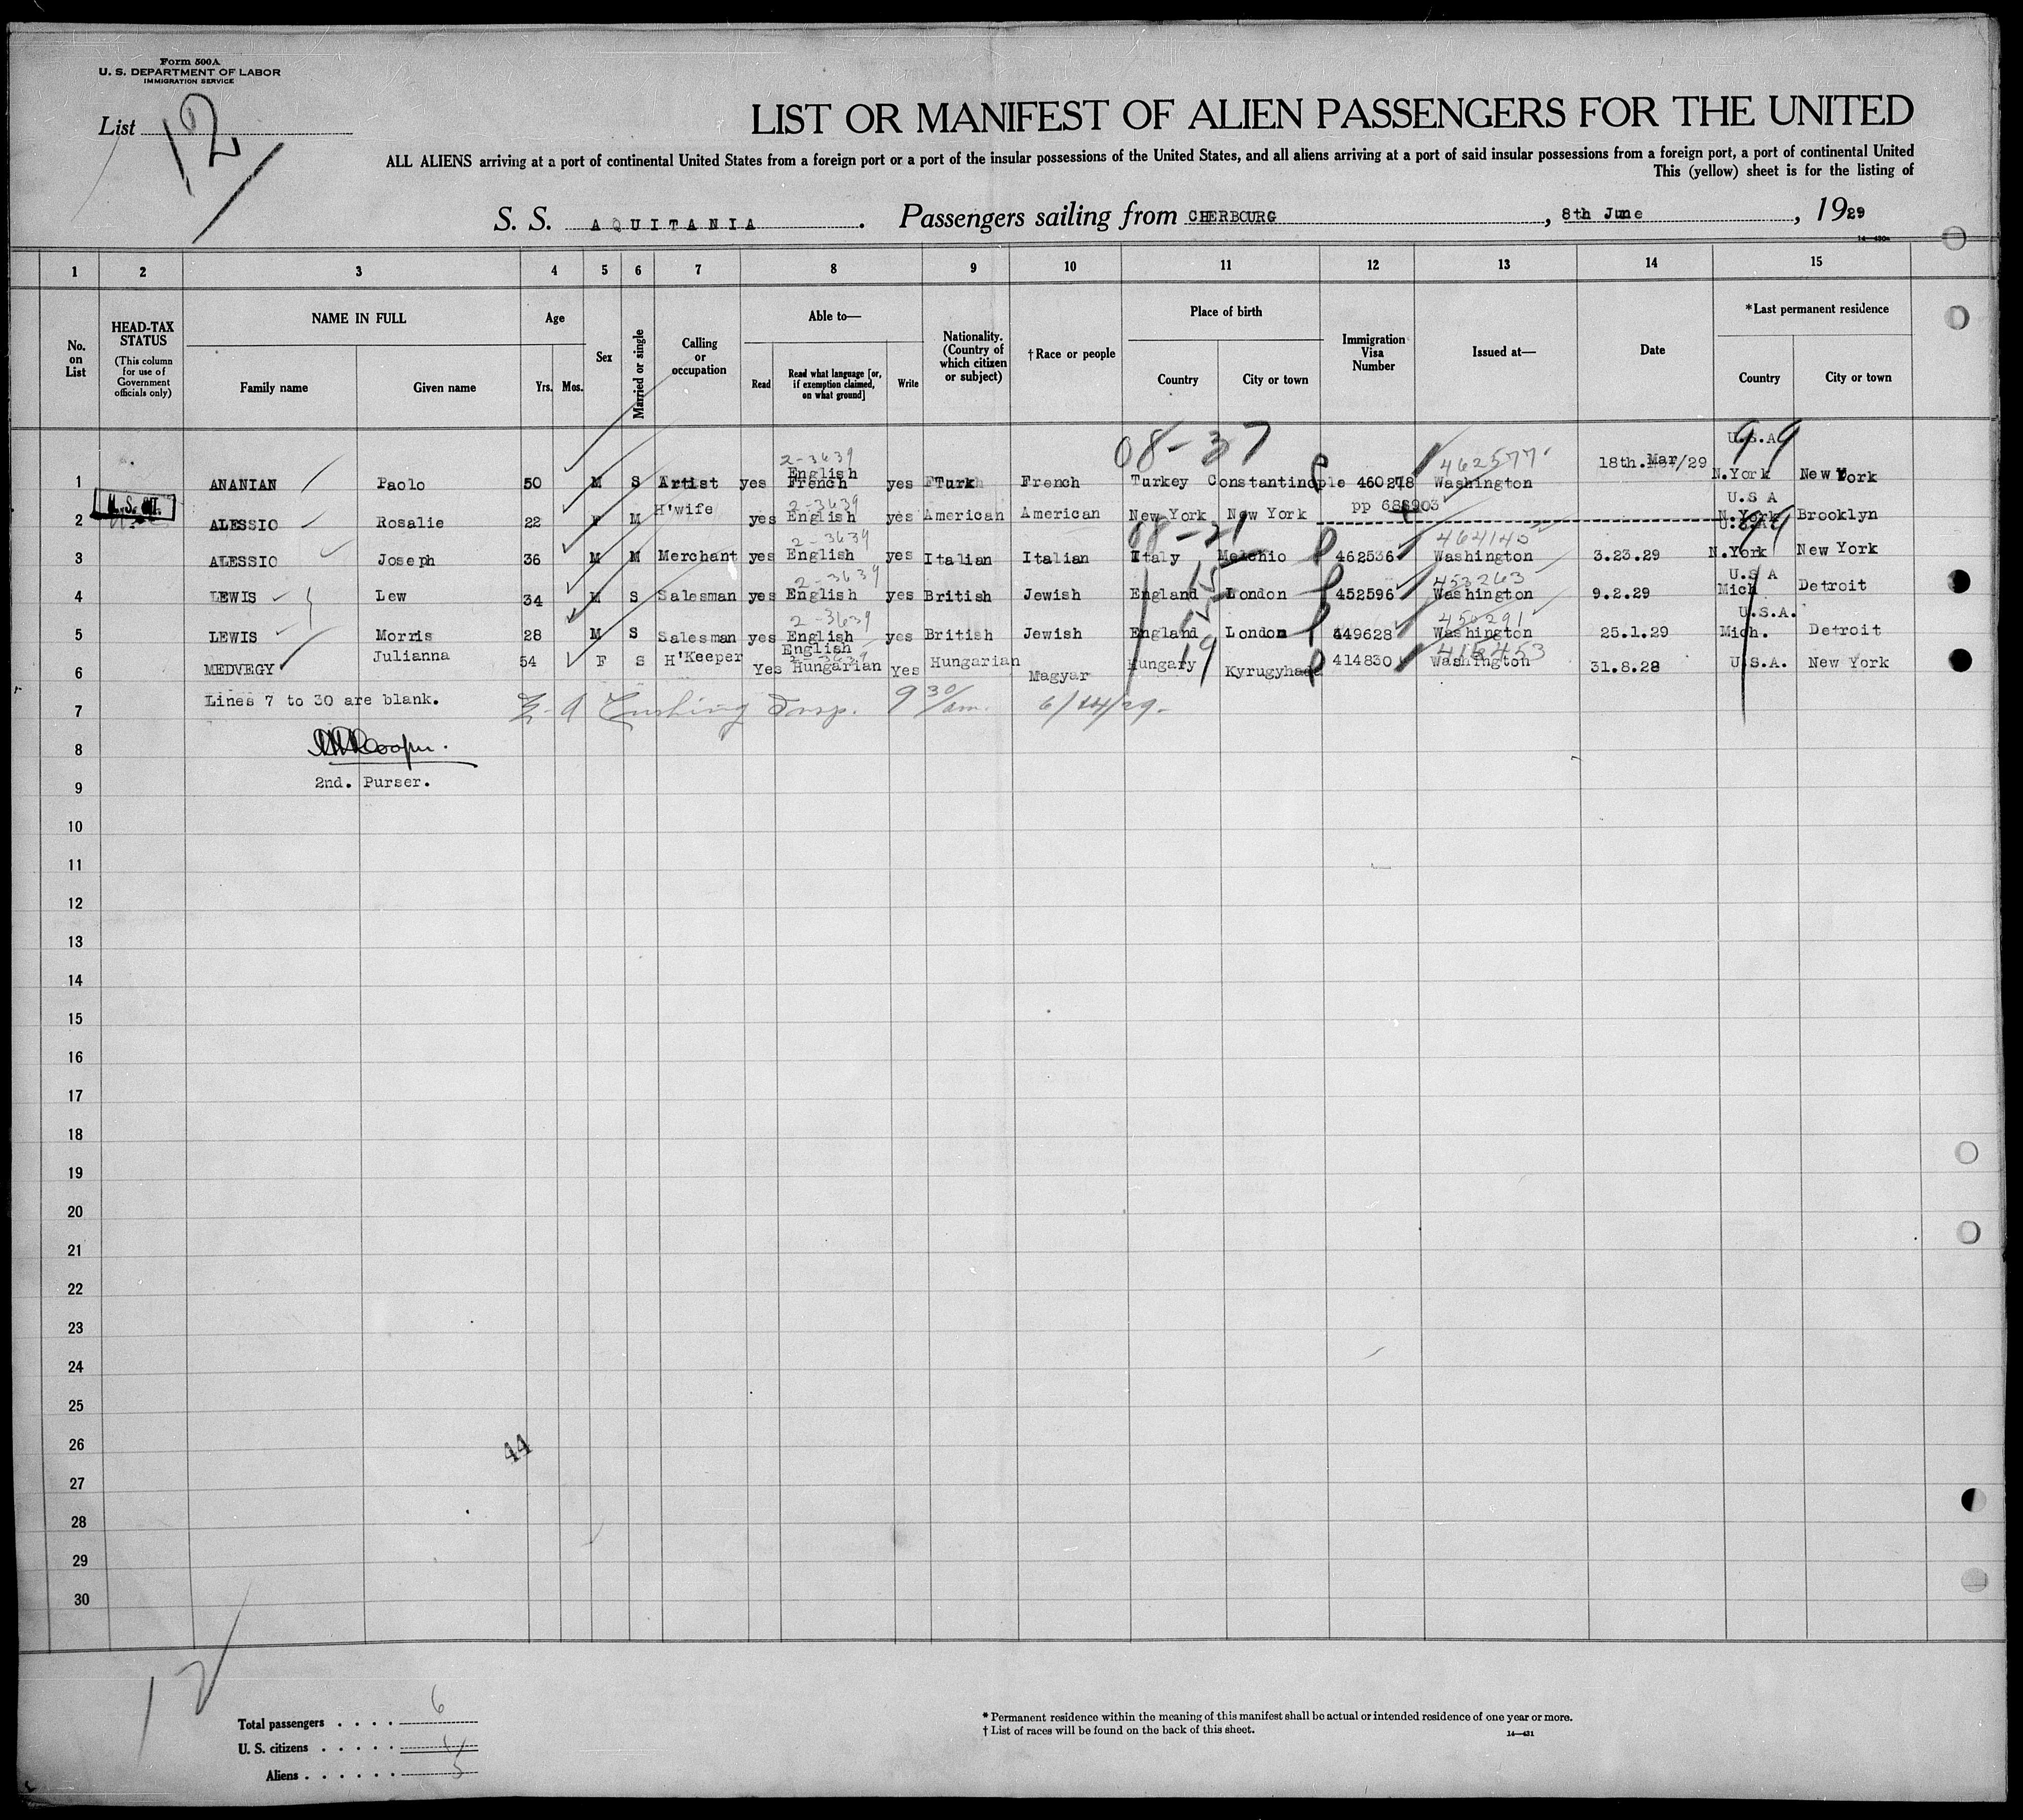 Form 500A
U. S. DEPARTMENT OF LABOR
IMMIGRATION SERVICE
List 12
LIST OR MANIFEST OF ALIEN PASSENGERS FOR THE UNITED
ALL ALIENS arriving at a port of continental United States from a foreign port or a port of the insular possessions of the United States, and all aliens arriving at a port of said insular possessions from a foreign port, a port of continental United
This (yellow) sheet is for the listing of
S. S. AQUITANIA. Passengers sailing from CHERBOURG, 8th June, 1929
1 2 3 4 5 6 7 8 9 10 11 12 13 14 15
No. on List
HEAD-TAX STATUS
(This column for use of Government officials only)
NAME IN FULL
Family name Given name
Age
Yrs. Mos.
Sex
Married or single
Calling or occupation
Able to—
Read Read what language [or, if exemption claimed, on what ground] Write
Nationality. (Country of which citizen or subject)
†Race or people
Place of birth
Country City or town
Immigration Visa Number
Issued at—
Date
*Last permanent residence
Country City or town
08-37 99
2-3639 462577 U.S.A
1 ANANIAN Paolo 50 M S Artist yes English French yes Turk French Turkey Constantinople 460278 Washington 18th.Mar/29 N.York New York
2-3639 U.S A
2 ALESSIO Rosalie 22 F M H'wife yes English yes American American New York New York pp 688903 N.York Brooklyn
08-21 99
2-3639 464140 U.S.A
3 ALESSIO Joseph 36 M M Merchant yes English yes Italian Italian Italy 462536 Washington 3.23.29 N.York New York
2-3639 453263 U.S A
4 LEWIS Lew 34 M S Salesman yes English yes British Jewish England London 452596 Washington 9.2.29 Mich Detroit
2-3639 450291 U.S.A.
5 LEWIS Morris 28 M S Salesman yes English yes British Jewish England London 449628 Washington 25.1.29 Mich. Detroit
2-3639 19 415453
6 MEDVEGY Julianna 54 F S H'Keeper Yes English Hungarian Yes Hungarian Magyar Hungary 414830 Washington 31.8.28 U.S.A. New York
Lines 7 to 30 are blank.
7 Cushing Insp. 9 30/am. 6/14/29-
8
2nd. Purser.
9
10
11
12
13
14
15
16
17
18
19
20
21
22
23
24
25
26
44
27
28
29
30
12
Total passengers . . . . 6
U. S. citizens . . . . . 1
Aliens . . . . . . 5
* Permanent residence within the meaning of this manifest shall be actual or intended residence of one year or more.
† List of races will be found on the back of this sheet.
14—431